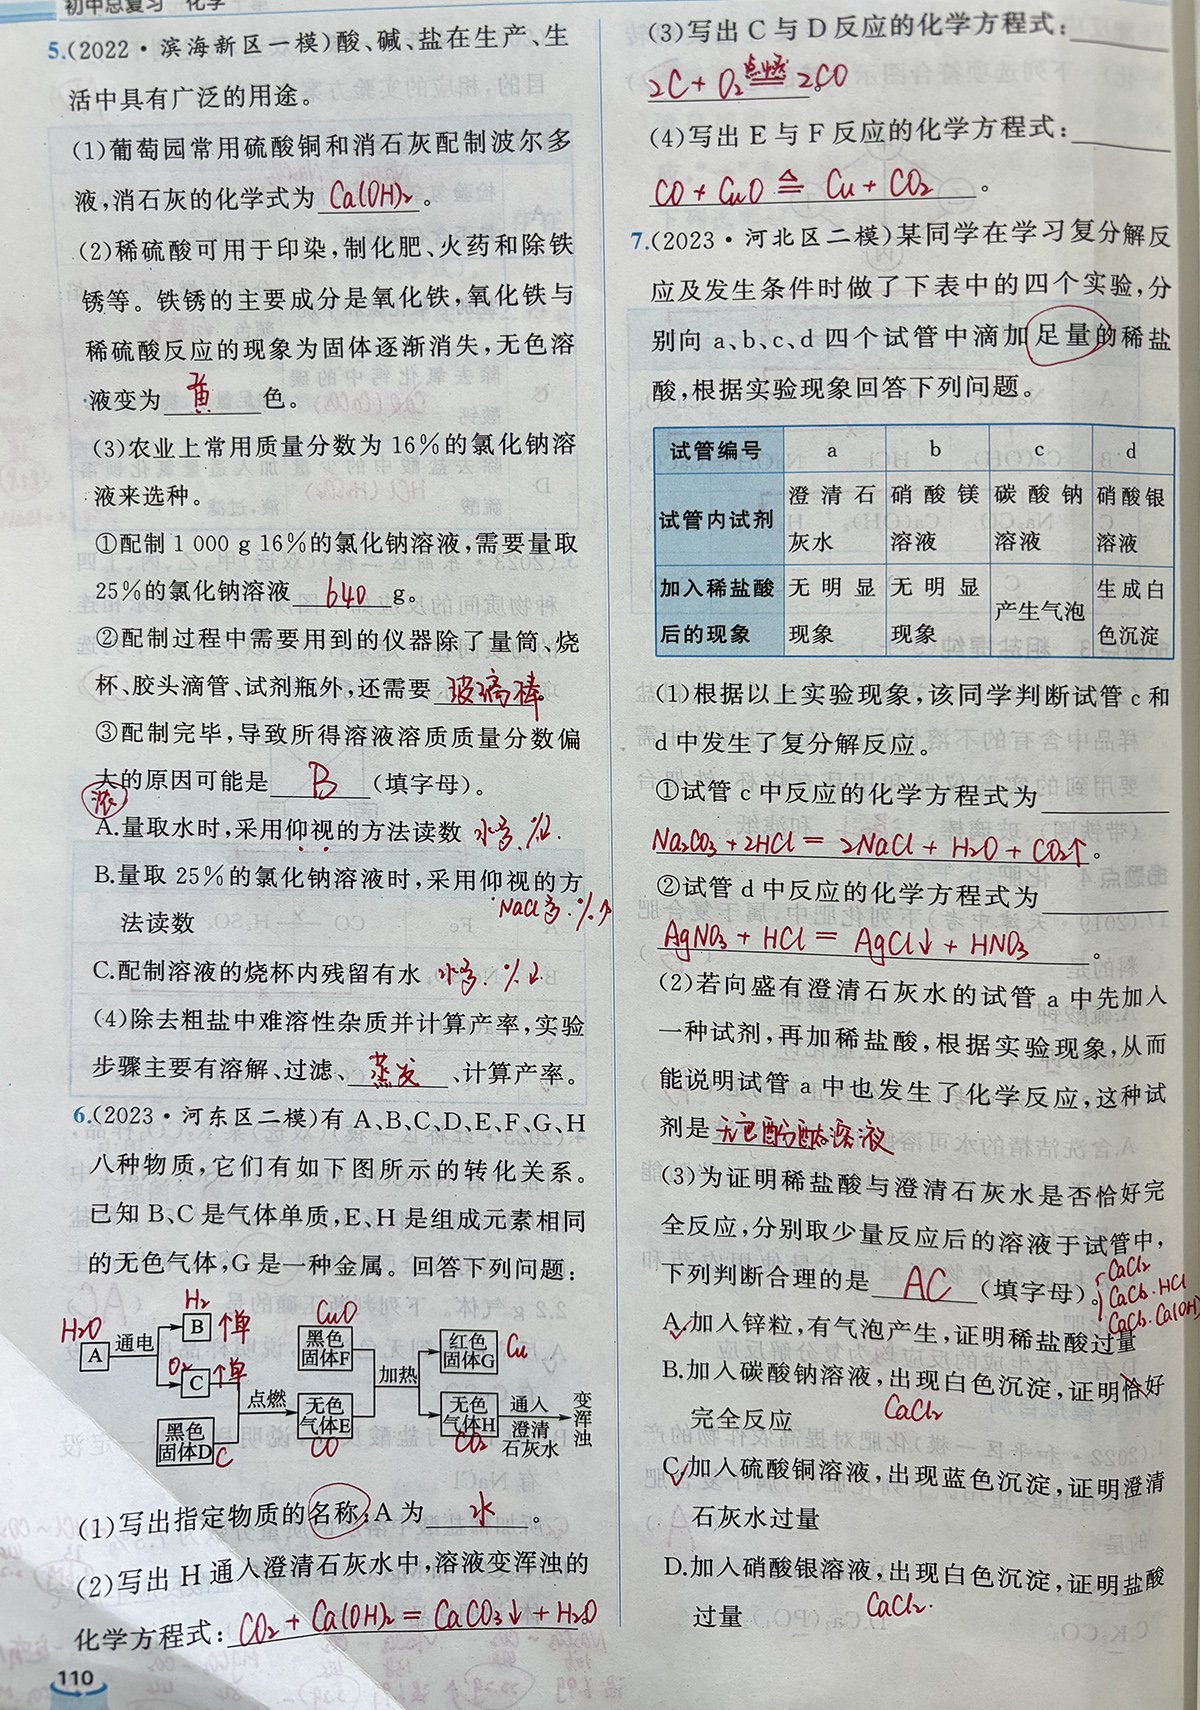 初中总复习 化学
5.(2022·滨海新区一模)酸、碱、盐在生产、生
活中具有广泛的用途。
(1)葡萄园常用硫酸铜和消石灰配制波尔多
液,消石灰的化学式为 Ca(OH)₂ 。
(2)稀硫酸可用于印染,制化肥、火药和除铁
锈等。铁锈的主要成分是氧化铁,氧化铁与
稀硫酸反应的现象为固体逐渐消失,无色溶
液变为 黄 色。
(3)农业上常用质量分数为16%的氯化钠溶
液来选种。
①配制1 000 g 16%的氯化钠溶液,需要量取
25%的氯化钠溶液 640 g。
②配制过程中需要用到的仪器除了量筒、烧
杯、胶头滴管、试剂瓶外,还需要 玻璃棒。
③配制完毕,导致所得溶液溶质质量分数偏
大的原因可能是 B (填字母)。
浓
A.量取水时,采用仰视的方法读数 水多.%↓.
B.量取25%的氯化钠溶液时,采用仰视的方
NaCl多.%↑
法读数
C.配制溶液的烧杯内残留有水 水多.%↓.
(4)除去粗盐中难溶性杂质并计算产率,实验
步骤主要有溶解、过滤、 蒸发 、计算产率。
6.(2023·河东区二模)有A、B、C、D、E、F、G、H
八种物质,它们有如下图所示的转化关系。
已知B、C是气体单质,E、H是组成元素相同
的无色气体,G是一种金属。回答下列问题:
H₂O A 通电
H₂ B 气单
O₂ C 气单
黑色固体D C
点燃
CuO 黑色固体F
无色气体E CO
加热
红色固体G Cu
无色气体H CO₂
通入澄清石灰水
变浑浊
(1)写出指定物质的名称:A为 水 。
(2)写出H通入澄清石灰水中,溶液变浑浊的
化学方程式: CO₂ + Ca(OH)₂ = CaCO₃↓ + H₂O
110
(3)写出C与D反应的化学方程式:
2C + O₂ 点燃 2CO 。
(4)写出E与F反应的化学方程式:
CO + CuO △= Cu + CO₂ 。
7.(2023·河北区二模)某同学在学习复分解反
应及发生条件时做了下表中的四个实验,分
别向a、b、c、d四个试管中滴加足量的稀盐
酸,根据实验现象回答下列问题。
试管编号 a b c d
试管内试剂 澄清石灰水 硝酸镁溶液 碳酸钠溶液 硝酸银溶液
加入稀盐酸后的现象 无明显现象 无明显现象 产生气泡 生成白色沉淀
(1)根据以上实验现象,该同学判断试管c和
d中发生了复分解反应。
①试管c中反应的化学方程式为
Na₂CO₃ + 2HCl = 2NaCl + H₂O + CO₂↑ 。
②试管d中反应的化学方程式为
AgNO₃ + HCl = AgCl↓ + HNO₃ 。
(2)若向盛有澄清石灰水的试管a中先加入
一种试剂,再加稀盐酸,根据实验现象,从而
能说明试管a中也发生了化学反应,这种试
剂是 无色酚酞溶液
(3)为证明稀盐酸与澄清石灰水是否恰好完
全反应,分别取少量反应后的溶液于试管中,
下列判断合理的是 AC (填字母)。
CaCl₂
CaCl₂.HCl
CaCl₂.Ca(OH)
A.加入锌粒,有气泡产生,证明稀盐酸过量
B.加入碳酸钠溶液,出现白色沉淀,证明恰好
CaCl₂
完全反应
C.加入硫酸铜溶液,出现蓝色沉淀,证明澄清
石灰水过量
D.加入硝酸银溶液,出现白色沉淀,证明盐酸
CaCl₂.
过量